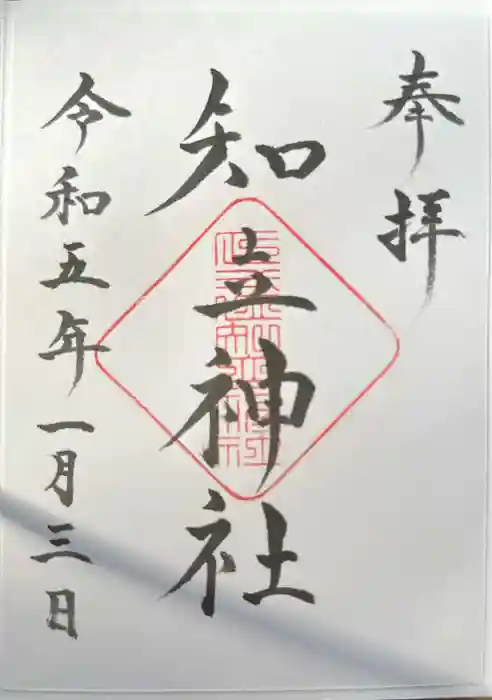 奉拝
知立神社
令和五年一月三日